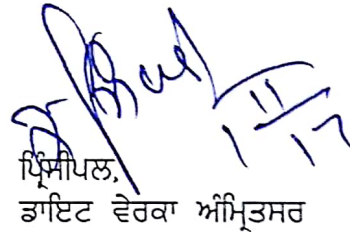 1/11/17
ਪ੍ਰਿੰਸੀਪਲ,
ਡਾਇਟ ਵੇਰਕਾ ਅੰਮ੍ਰਿਤਸਰ